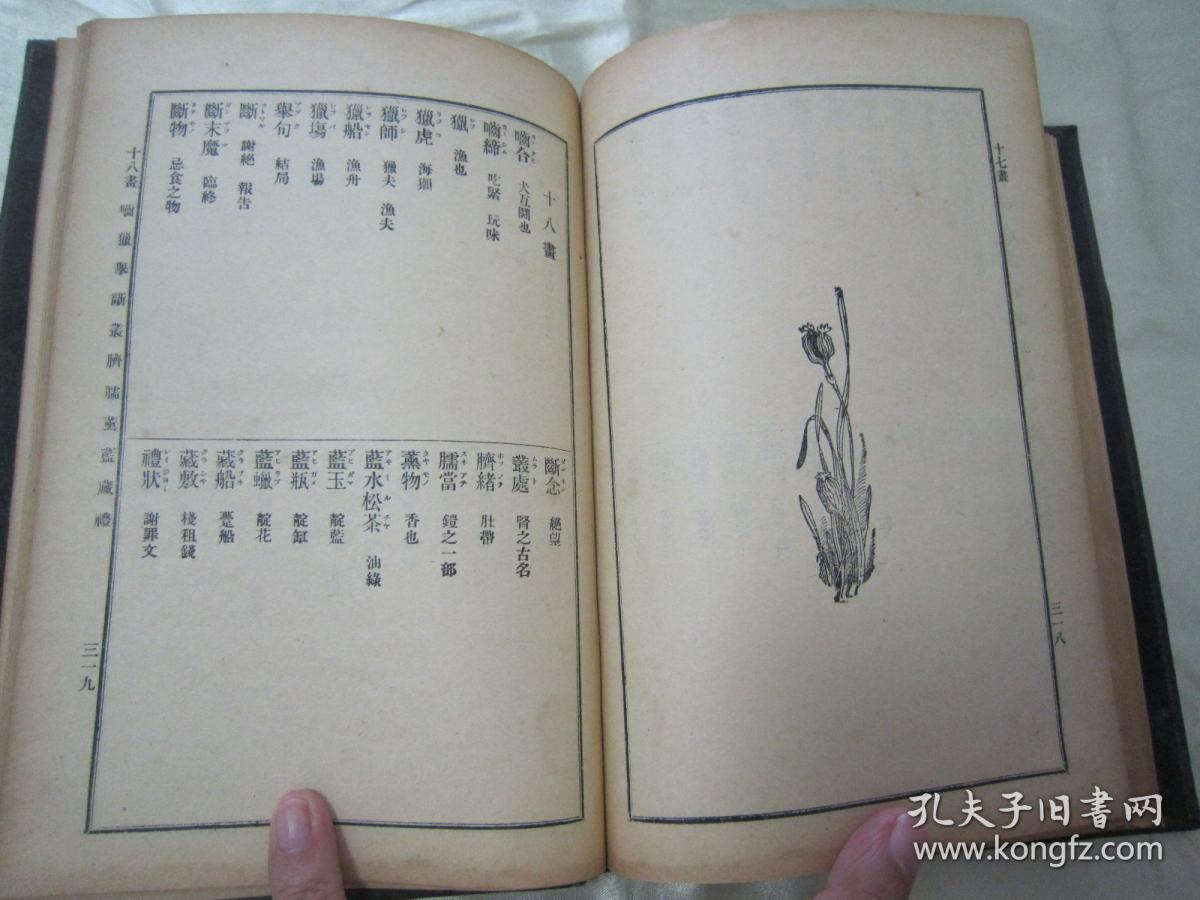 十七畫
三一八
十八畫
嚙合 犬互鬪也
嚙締 吃緊 玩味
獵 漁也
獵虎 海獺
獵師 獵夫 漁夫
獵船 漁舟
獵場 漁場
舉句 結局
斷 謝絕 報告
斷末魔 臨終
斷物 忌食之物
斷念 絕望
叢處 腎之古名
臍緒 肚帶
臑當 鎧之一部
薰物 香也
藍水松茶 油綠
藍玉 靛藍
藍瓶 靛缸
藍蠟 靛花
藏船 躉船
藏敷 棧租錢
禮狀 謝罪文
十八畫 嚙獵舉斷叢臍臑薰藍藏禮
三一九
孔夫子旧书网
www.kongfz.com